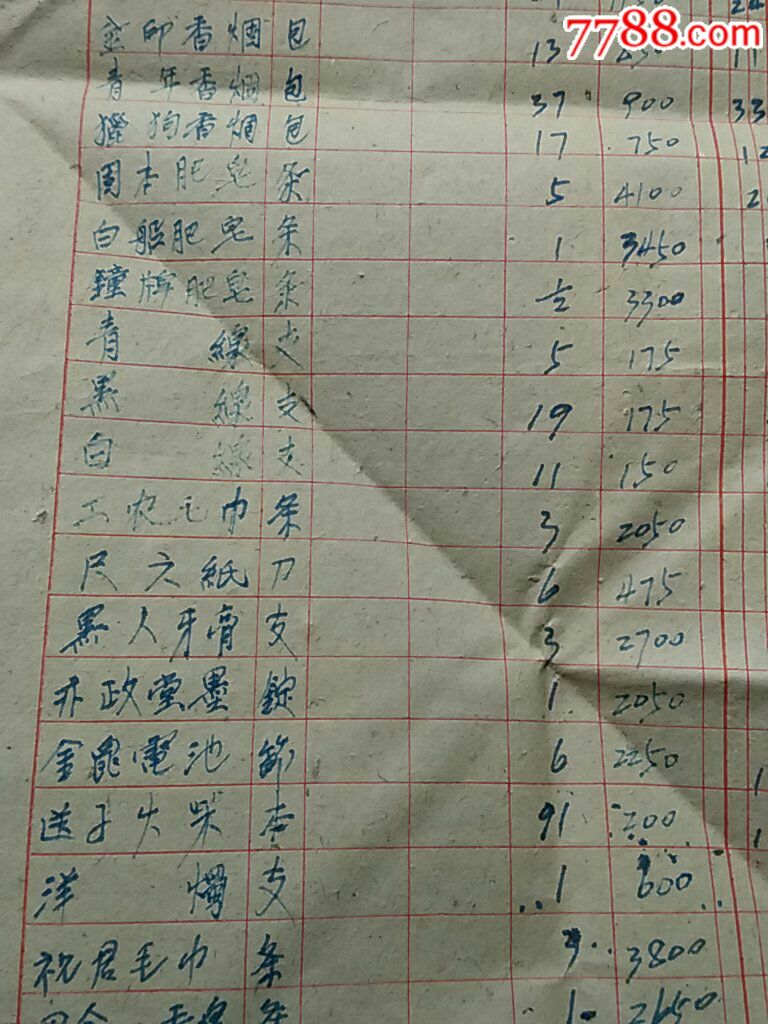 7788.com
金印香烟 包 13
青年香烟 包 37 900 33
獵狗香烟 包 17 750
固本肥皂 条 5 4100
白船肥皂 条 1 3450
鐘牌肥皂 条 ½ 3300
青線 支 5 175
黑線 支 19 175
白線 支 11 150
工农毛巾 条 3 2050
尺六紙 刀 6 475
黑人牙膏 支 3 2700
亦政堂墨 錠 1 2050
金鼎電池 節 6 2250
送子火柴 91 200
洋燭 支 1 600
祝君毛巾 条 3 3800
1 2650